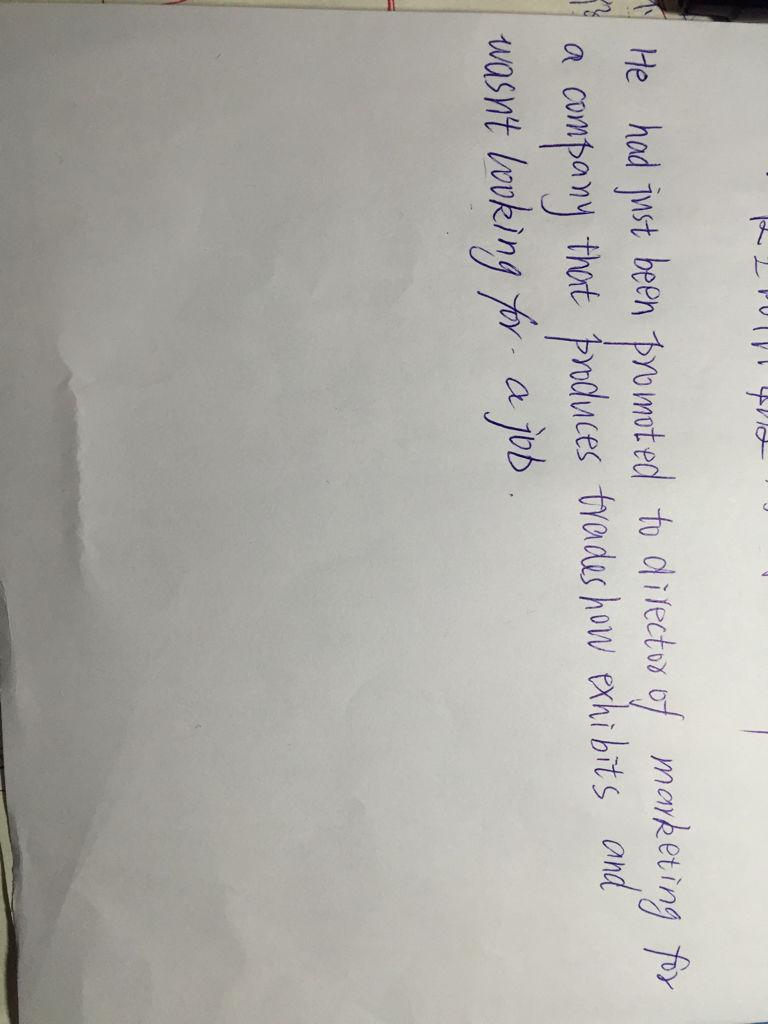 He had just been promoted to director of marketing for
a company that produces tradeshow exhibits and
wasn't looking for a job.